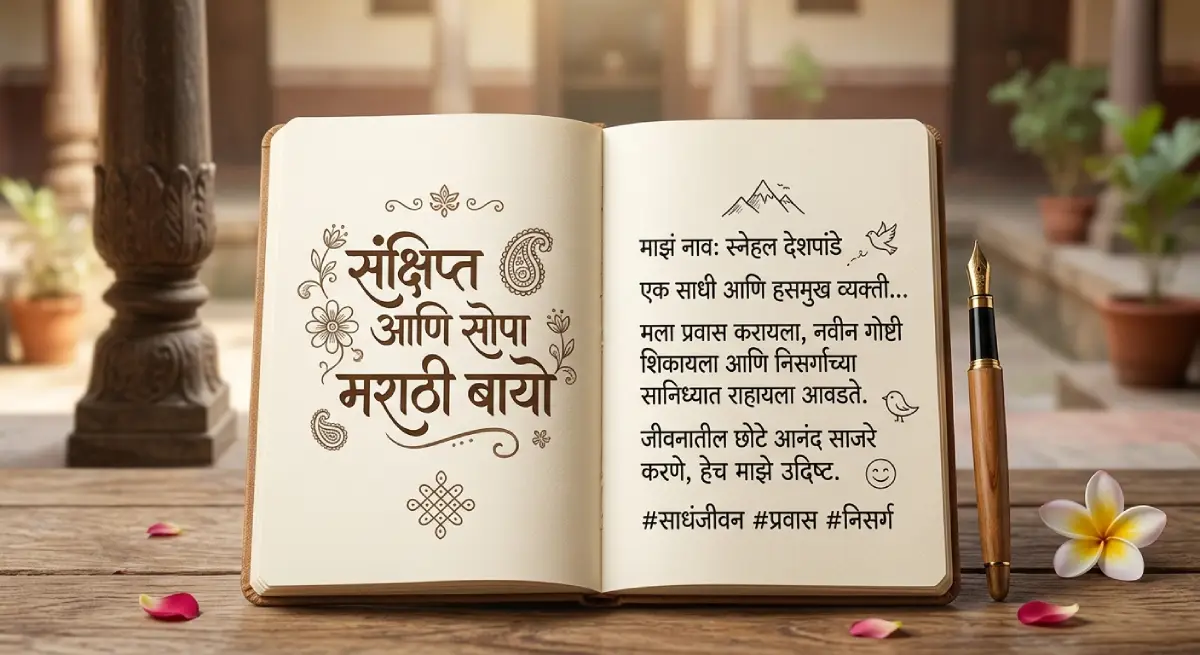 संक्षिप्त
आणि सोपा
मराठी बायो
माझं नाव: स्नेहल देशपांडे
एक साधी आणि हसमुख व्यक्ती...
मला प्रवास करायला, नवीन गोष्टी
शिकायला आणि निसर्गाच्या
सानिध्यात राहायला आवडते.
जीवनातील छोटे आनंद साजरे
करणे, हेच माझे उदिष्ट.
#साधंजीवन #प्रवास #निसर्ग